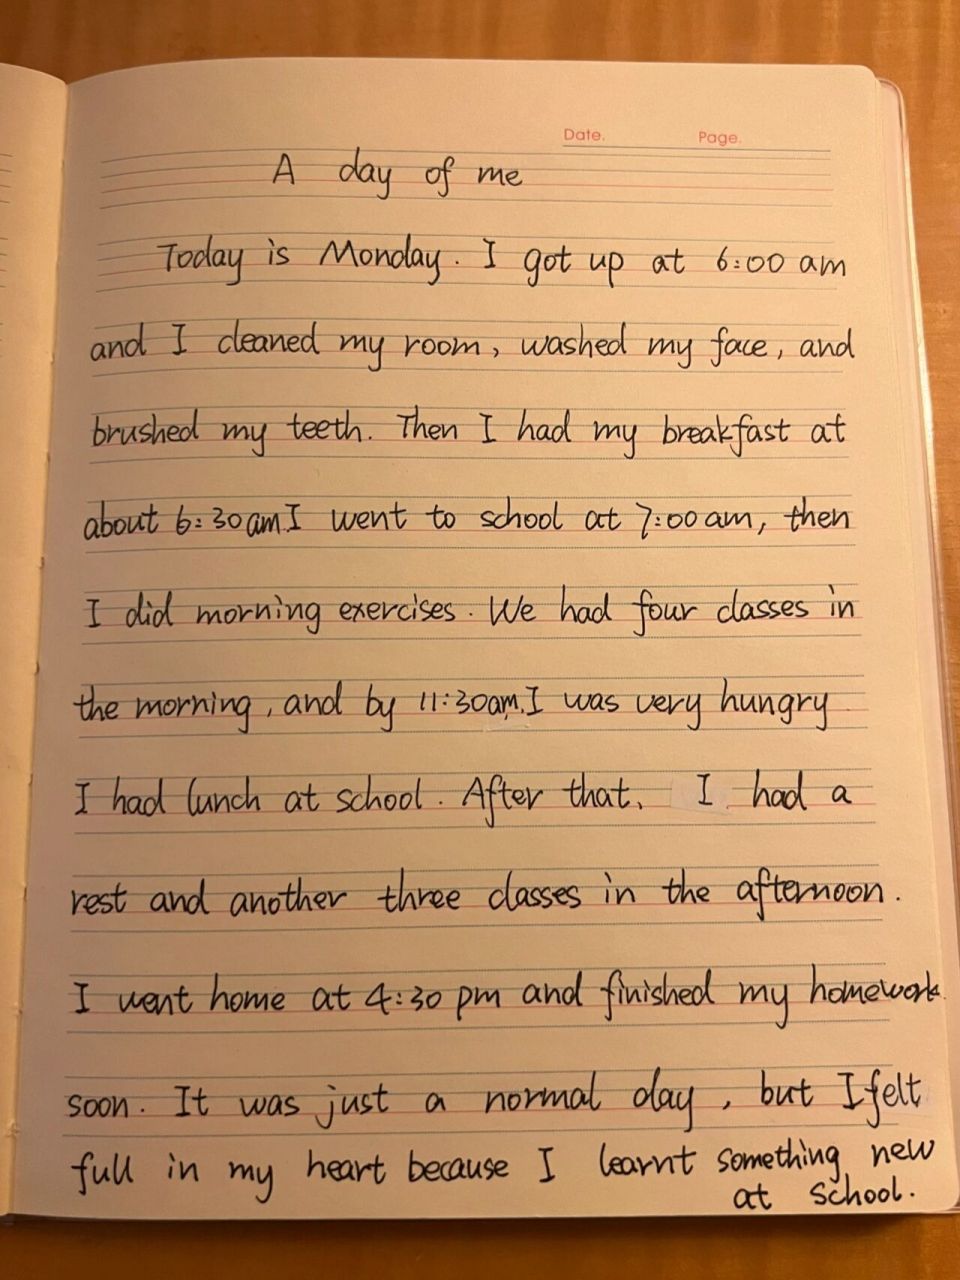 Date. Page.
A day of me
Today is Monday. I got up at 6:00 am
and I cleaned my room, washed my face, and
brushed my teeth. Then I had my breakfast at
about 6:30am.I went to school at 7:00am, then
I did morning exercises. We had four classes in
the morning, and by 11:30am,I was very hungry
I had lunch at school. After that, I had a
rest and another three classes in the afternoon.
I went home at 4:30 pm and finished my homework.
soon. It was just a normal day, but I felt
full in my heart because I learnt something new
at school.